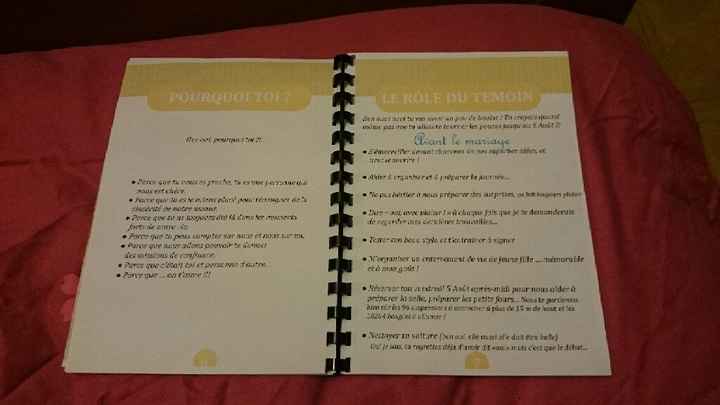 POURQUOI TOI ?
Oui oui, pourquoi toi ?!
• Parce que tu nous es proche, tu es une personne qui
nous est chère.
• Parce que tu es le mieux placé pour témoigner de la
sincérité de notre amour.
• Parce que tu as toujours été là dans les moments
forts de notre vie.
• Parce que tu peux compter sur nous et nous sur toi.
• Parce que nous allons pouvoir te donner
des missions de confiance.
• Parce que c'était toi et personne d'autre.
• Parce que ... on t'aime !!!
LE RÔLE DU TEMOIN
Ben oui ! oui ! tu vas avoir un peu de boulot ! Tu croyais quand
même pas que tu allais te tourner les pouces jusqu'au 5 Août ?!
Avant le mariage
• S'émerveiller devant chacune de nos superbes idées, et
avec le sourire !
• Aider à organiser et à préparer la journée...
• Ne pas hésiter à nous préparer des surprises, ça fait toujours plaisir
• Dire « oui, avec plaisir ! » à chaque fois que je te demanderais
de regarder mes dernières trouvailles...
• Tester ton beau stylo et t'entraîner à signer
• M'organiser un enterrement de vie de jeune fille .... mémorable
et à mon goût !
• Réserver ton vendredi 5 Août après-midi pour nous aider à
préparer la salle, préparer les petits fours... Nous te garderons
bien sûr les 96 suspensions à accrocher à plus de 15 m de haut et les
10264 bougies à allumer !
• Nettoyer ta voiture (ben oui, elle aussi elle doit être belle)
Oui je sais, tu regrettes déjà d'avoir dit «oui» mais c'est que le début...